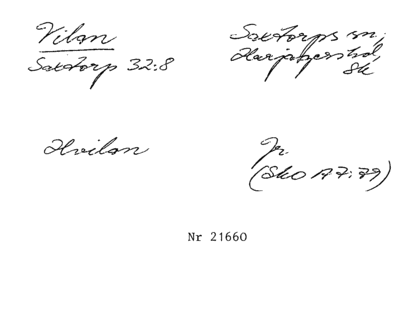 Vilan
Saxtorp 32:8
Saxtorps sn,
Harjagers hd,
Sk
Hvilan
Jr.
(SkO A7:79)
Nr 21660